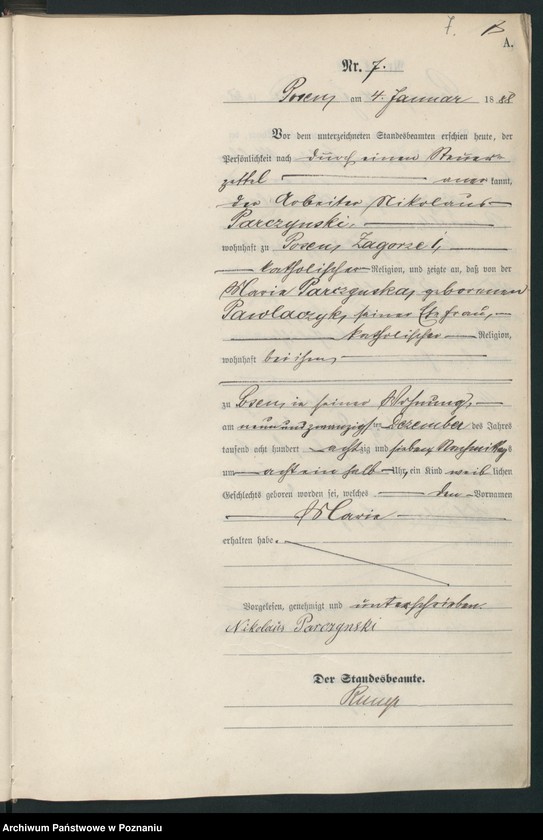 7.
A.
Nr. 7.
Posen, am 4. Januar 1888
Vor dem unterzeichneten Standesbeamten erschien heute, der
Persönlichkeit nach durch einen Steuer-
zettel anerkannt,
der Arbeiter Nikolaus
Parczynski,
wohnhaft zu Posen, Zagorze 1,
katholischer Religion, und zeigte an, daß von der
Maria Parczynska, geborenen
Pawlaczyk, seiner Ehefrau,
katholischer Religion,
wohnhaft bei ihm,
zu Posen, in seiner Wohnung,
am neunundzwanzigsten Dezember des Jahres
tausend acht hundert achtzig und sieben Nachmittags
um acht ein halb Uhr, ein Kind weiblichen
Geschlechts geboren worden sei, welches den Vornamen
Marie
erhalten habe.
Vorgelesen, genehmigt und unterschrieben.
Nikolaus Parczynski
Der Standesbeamte.
Archiwum Państwowe w Poznaniu